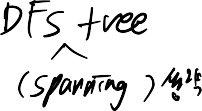 DFS tree
(spanning) 생략